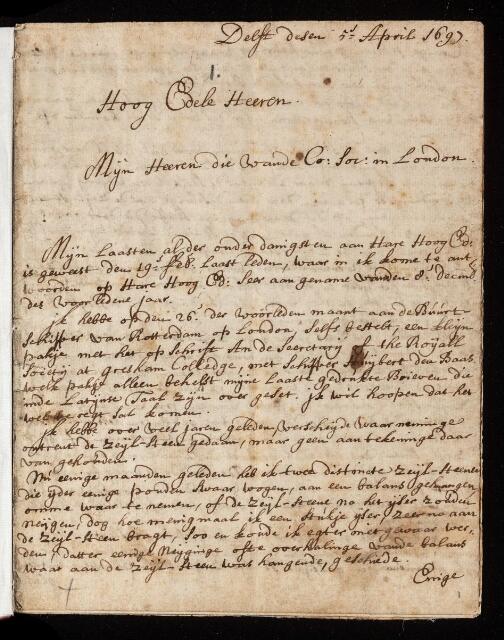 Delft desen 5e April 1697.
1.
Hoog Edele Heeren.
Mijn Heeren die vande Co: Soc: in London.
Mijn Laasten alder onderdanigsten aan Hare Hoog Ed:
is geweest den 19e feb. Laast leden, waar in ik kome te ant,
woorden op Hare Hoog Ed: seer aangename vanden 8e decemb
des voorledene jaar.
ik hebbe op den 26e der voorleden maant aan de Buurt-
Schipper van Rotterdam op London, selfs bestelt, een klijn
pakje met het op schrift An de Secretarij of the Royall
Society at gresham Colledge, met Schipper Huijbert den Baas
welk pakje alleen behelst mijne Laast gedrukte Brieven die
inde Latijnse Taal zijn over geset, ik wil hoopen dat het
wel te regt sal komen.
ik hebbe over veel jaren geleden, verscheijde waarneminge
ontrent de Zeijl-Steen gedaan, maar geen aantekeninge daar
van gehouden.
Nu eenige maanden geleden heb ik twee distincte Zeijl-Steenen
die ijder eenige ponden swaar wogen, aan een balans gehangen
omme waar te nemen, of de Zeijl-Steene na het ijser zouden
neijgen, dog hoe menigmaal ik een stukje ijser zeer na aan
de Zeijl-Steen bragt, soo en konde ik egter niet gewaar wer-
den, datter eenige Neijginge ofte overhalinge vande balans
waar aan de Zeijl-Steen was hangende, geschiede.
Eenige